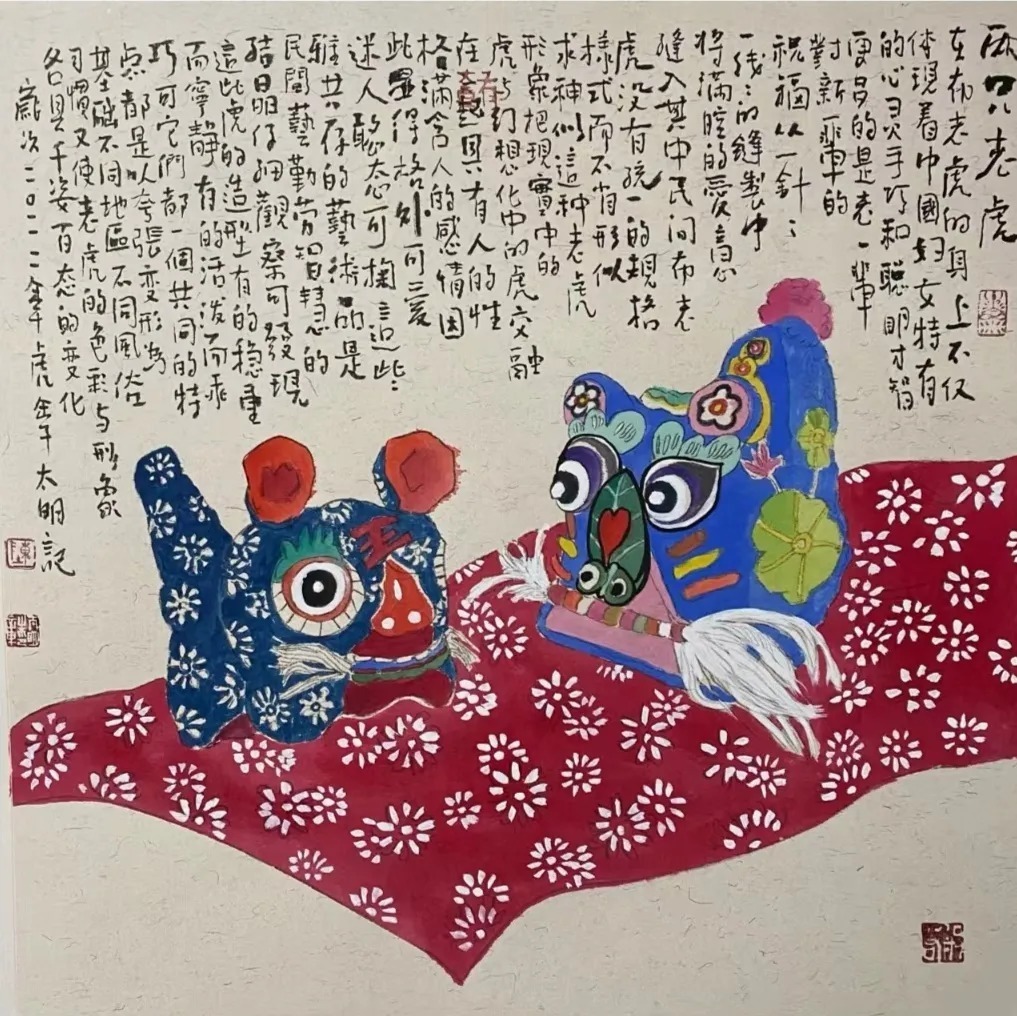 兩只老虎
在布老虎的身上不仅
体現着中國妇女特有
的心灵手巧和聰明才智
更多的是老一輩
對新一輩的
祝福从一針：
一线：的缝製中
将满腔的愛意
缝入其中民间布老
虎没有统一的規格
樣式而不肖形似
求神似這种老虎
形象把現實中的
虎与幻想化中的虎交融
在一起具有人的性
格满含人的感情因
此显得格外可爱
迷人憨态可掬這些：
雅共存的藝術品是
民間藝勤劳智慧的
结晶仔細觀察可發現
這些虎的造型有的稳重
而寧静有的活泼而乖
巧可它們都一個共同的特
点都是以夸張变形为
基础不同地區不同風俗
習慣又使老虎的色彩与形象
各具千姿百态的变化
歲次二〇二二年虎年太明記
王